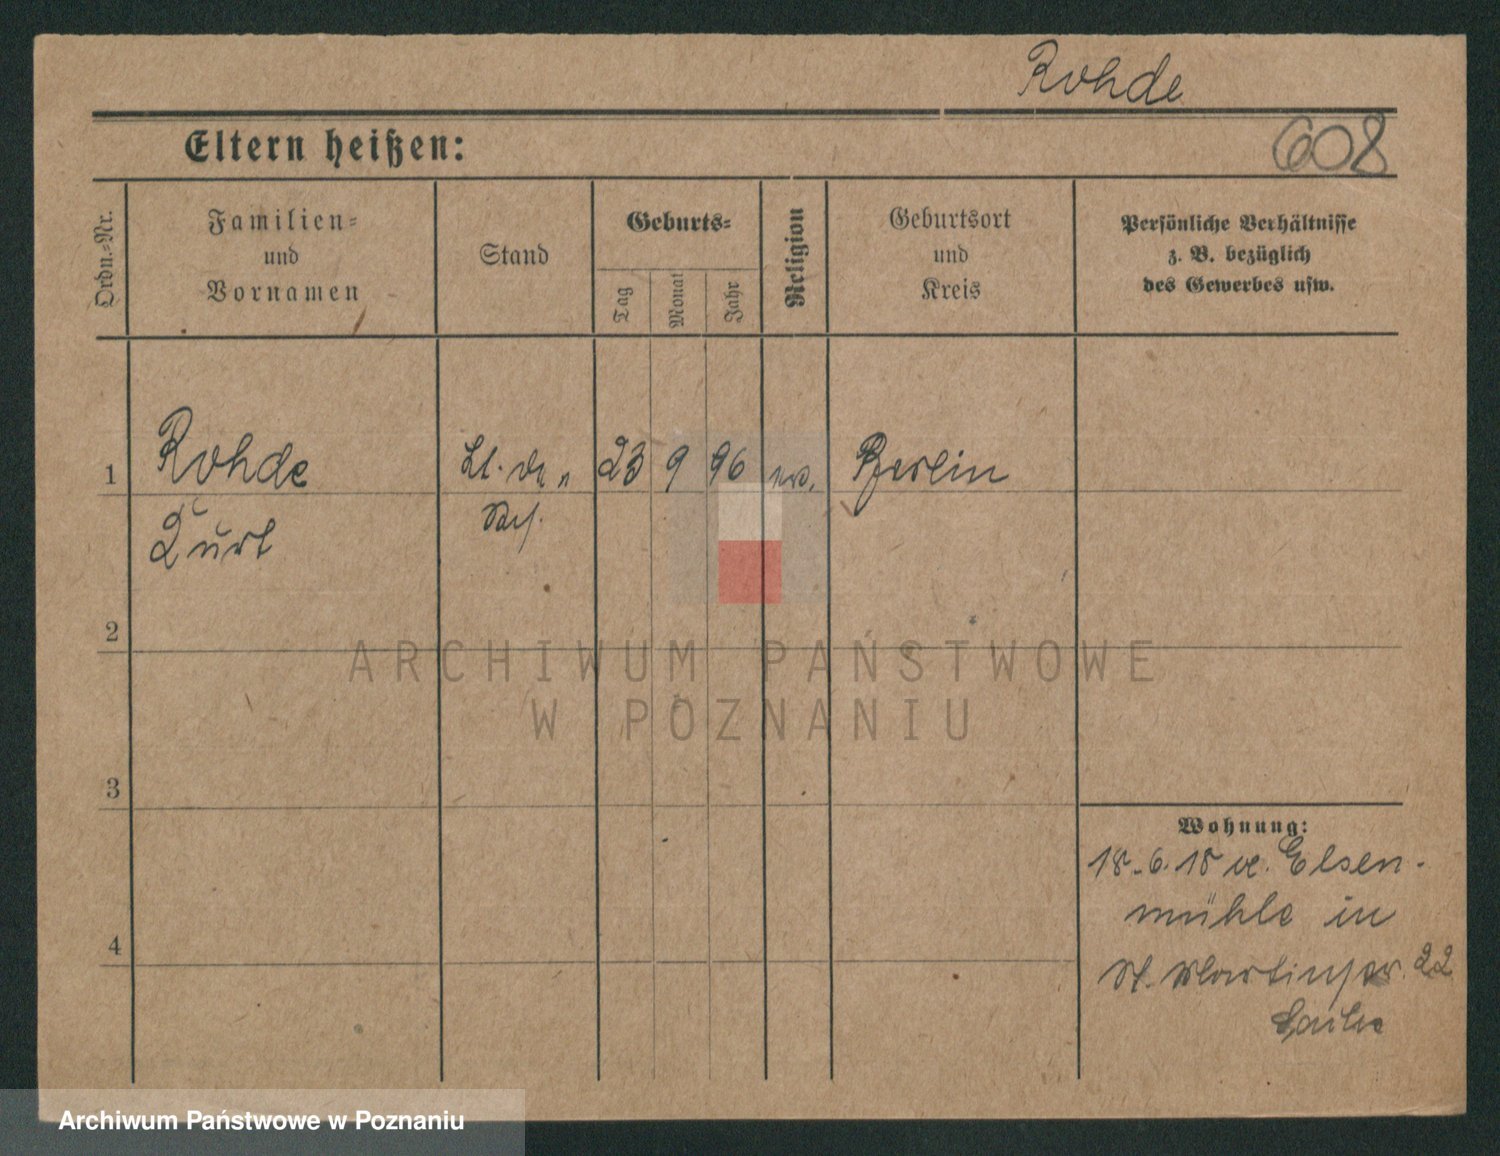 Rohde
Eltern heißen:
608
Ordn.-Nr.
Familien-
und
Vornamen
Stand
Geburts-
Tag
Monat
Jahr
Religion
Geburtsort
und
Kreis
Persönliche Verhältnisse
z. B. bezüglich
des Gewerbes usw.
1
Rohde
Lt. d.
23 9 96
Berlin
Kurt
2
ARCHIWUM PAŃSTWOWE
W POZNANIU
3
Wohnung:
18.6.18 Elsen-
mühle in
4
St. Martinstr. 22
Archiwum Państwowe w Poznaniu